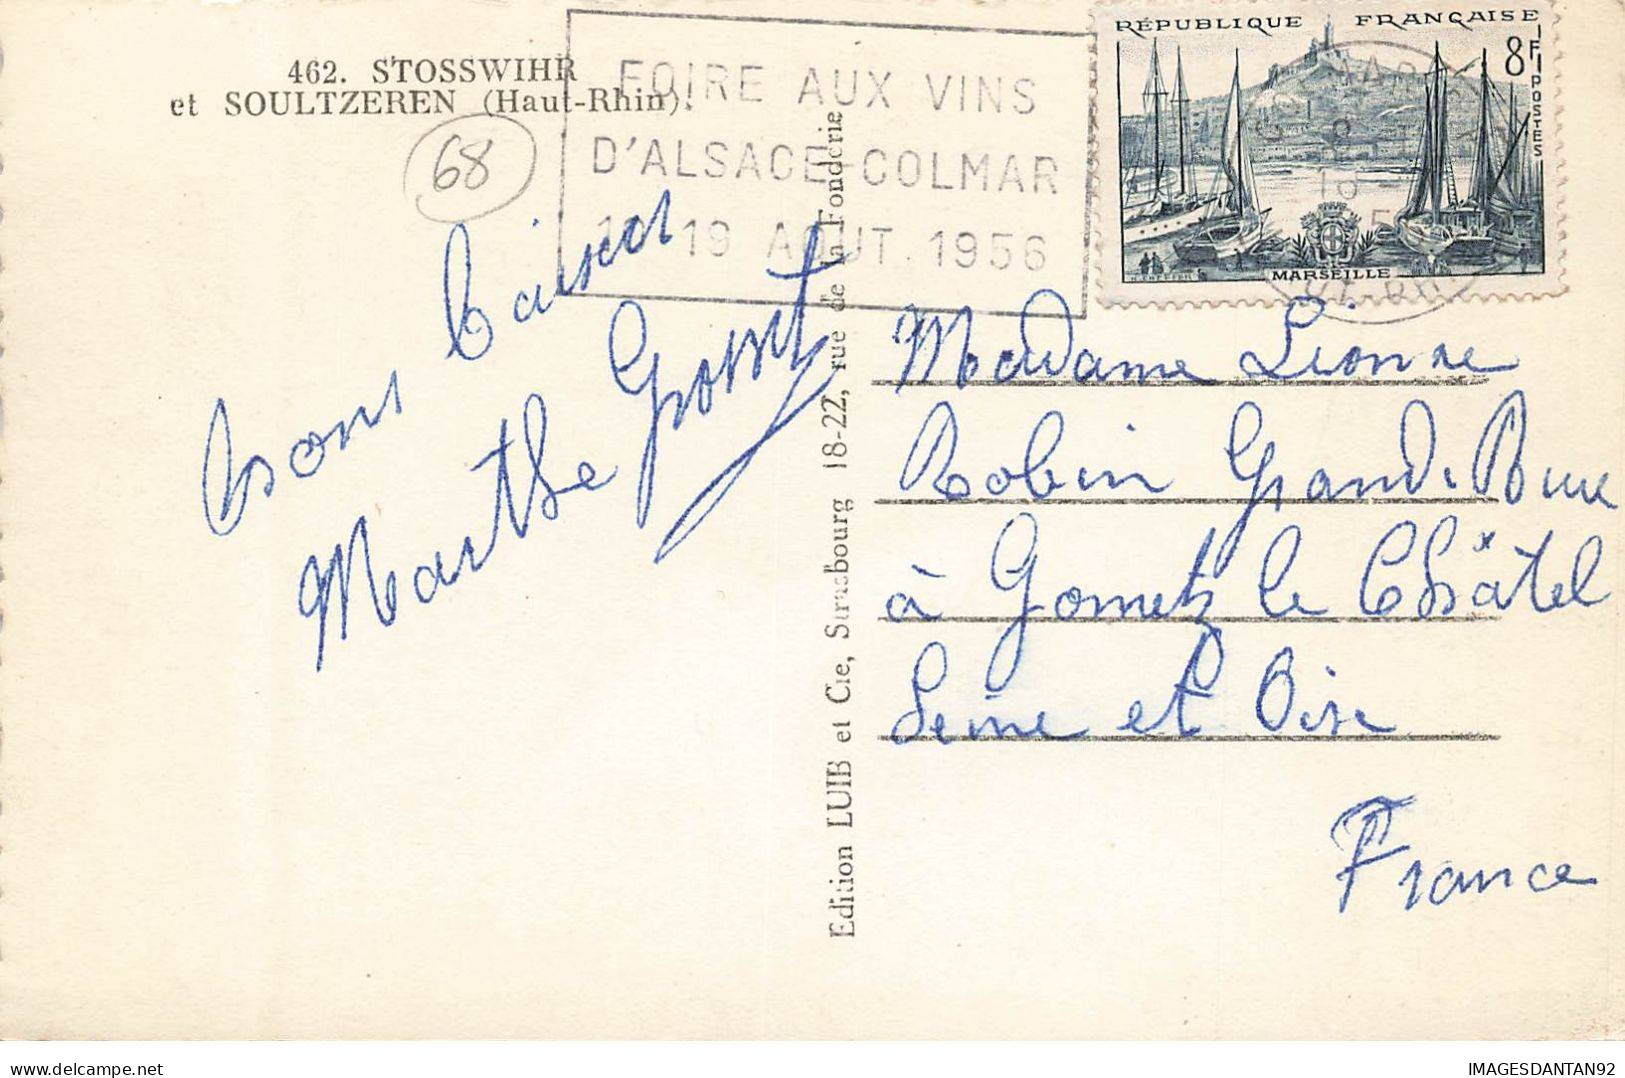 462. STOSSWIHR
et SOULTZEREN (Haut-Rhin).
68
FOIRE AUX VINS
D'ALSACE-COLMAR
19 AOUT 1956
RÉPUBLIQUE FRANÇAISE
8F
POSTES
MARSEILLE
Bons Baisers
Marthe
Edition LUIB et Cie, Strasbourg 18-22, rue de la Fonderie
Madame Lionne
Robin Grande Rue
à Gometz le Châtel
Seine et Oise
France
IMAGESDANTAN92